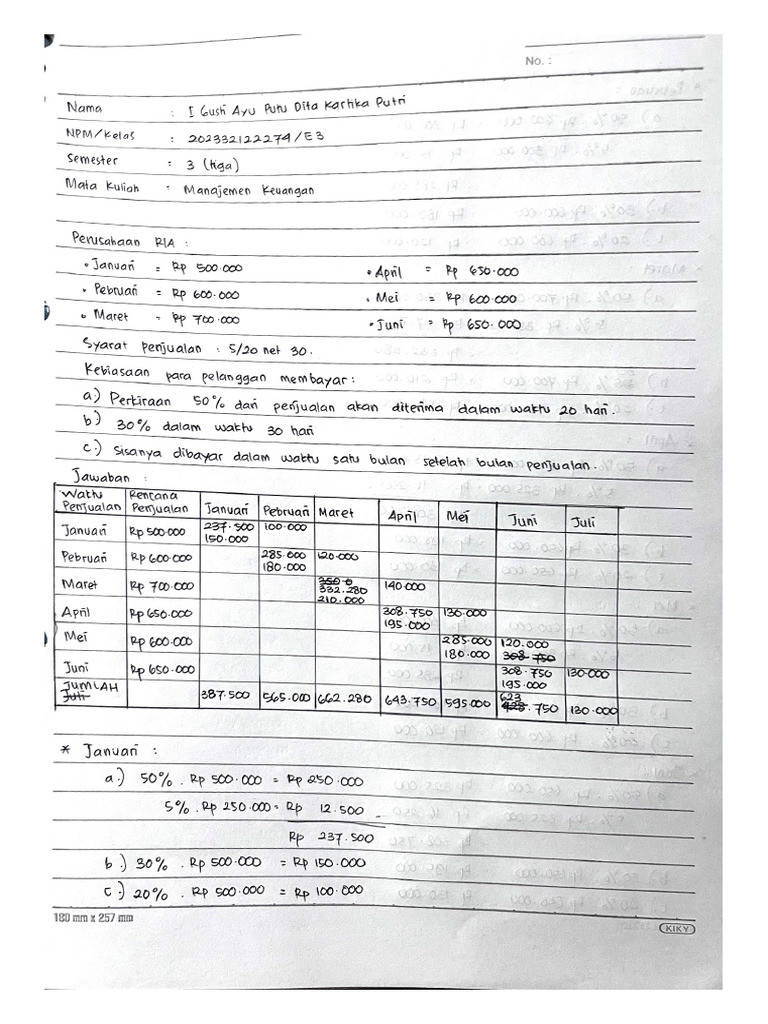 No. :
Nama : I Gusti Ayu Putu Dita Kartika Putri
NPM/Kelas : 202332122274/E3
Semester : 3 (tiga)
Mata Kuliah : Manajemen Keuangan
Perusahaan RIA :
• Januari = Rp 500.000 • April = Rp 650.000
• Pebruari = Rp 600.000 • Mei = Rp 600.000
• Maret = Rp 700.000 • Juni = Rp 650.000
Syarat penjualan : 5/20 net 30.
Kebiasaan para pelanggan membayar :
a.) Perkiraan 50% dari penjualan akan diterima dalam waktu 20 hari.
b.) 30% dalam waktu 30 hari
c.) Sisanya dibayar dalam waktu satu bulan setelah bulan penjualan.
Jawaban :
Waktu Penjualan Rencana Penjualan Januari Pebruari Maret April Mei Juni Juli
Januari Rp 500.000 237.500 100.000
150.000
Pebruari Rp 600.000 285.000 120.000
180.000
Maret Rp 700.000 332.280 140.000
210.000
April Rp 650.000 308.750 130.000
195.000
Mei Rp 600.000 285.000 120.000
180.000 308 750
Juni Rp 650.000 308.750 130.000
195.000
JUMLAH 387.500 565.000 662.280 643.750 595.000 623.750 130.000
Juli
* Januari :
a.) 50% . Rp 500.000 = Rp 250.000
5% . Rp 250.000 = Rp 12.500 -
Rp 237.500
b.) 30% . Rp 500.000 = Rp 150.000
c.) 20% . Rp 500.000 = Rp 100.000
180 mm x 257 mm KIKY